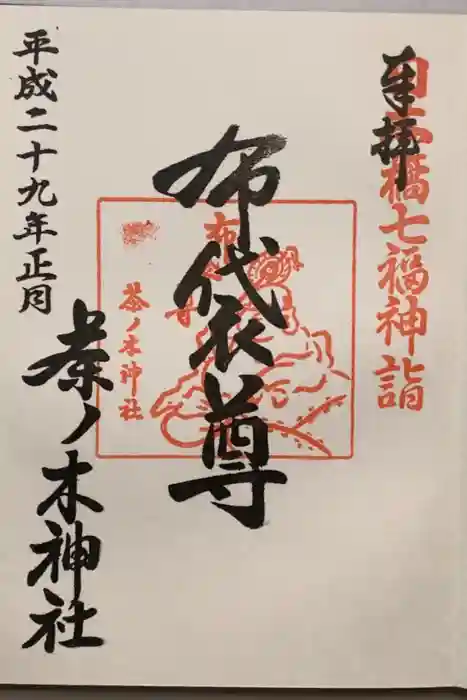 奉拝
日本橋七福神詣
布袋尊
布袋尊
茶ノ木神社
平成二十九年正月
茶ノ木神社